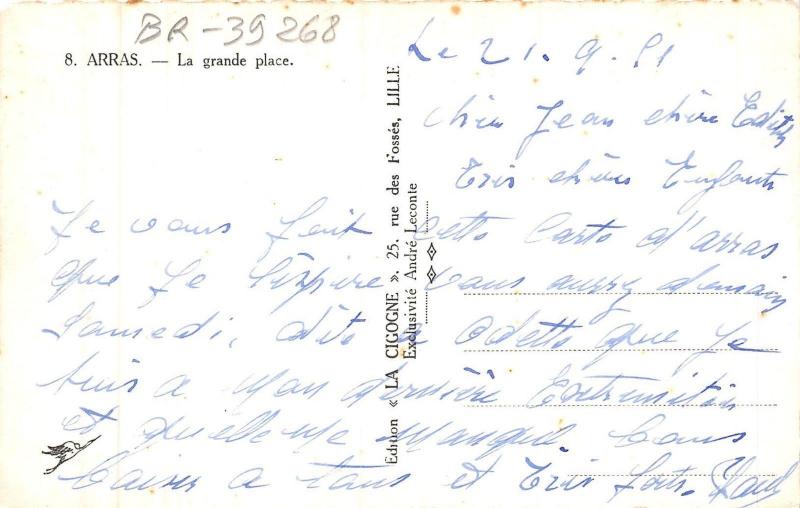 BR-39268
8. ARRAS. — La grande place.
Edition « LA CIGOGNE », 25, rue des Fossés, LILLE
Exclusivité André Leconte
Le 21. 9. 51
chéri Jean chérie Edith
Tris chérs Enfants
Je vous fait cette Carte d'arras
que Je vous demain
Samedi, dits a Odette que Je
suis a Mon dernière
et quelle me Manque. bons
baiser a tous et Tris forts.